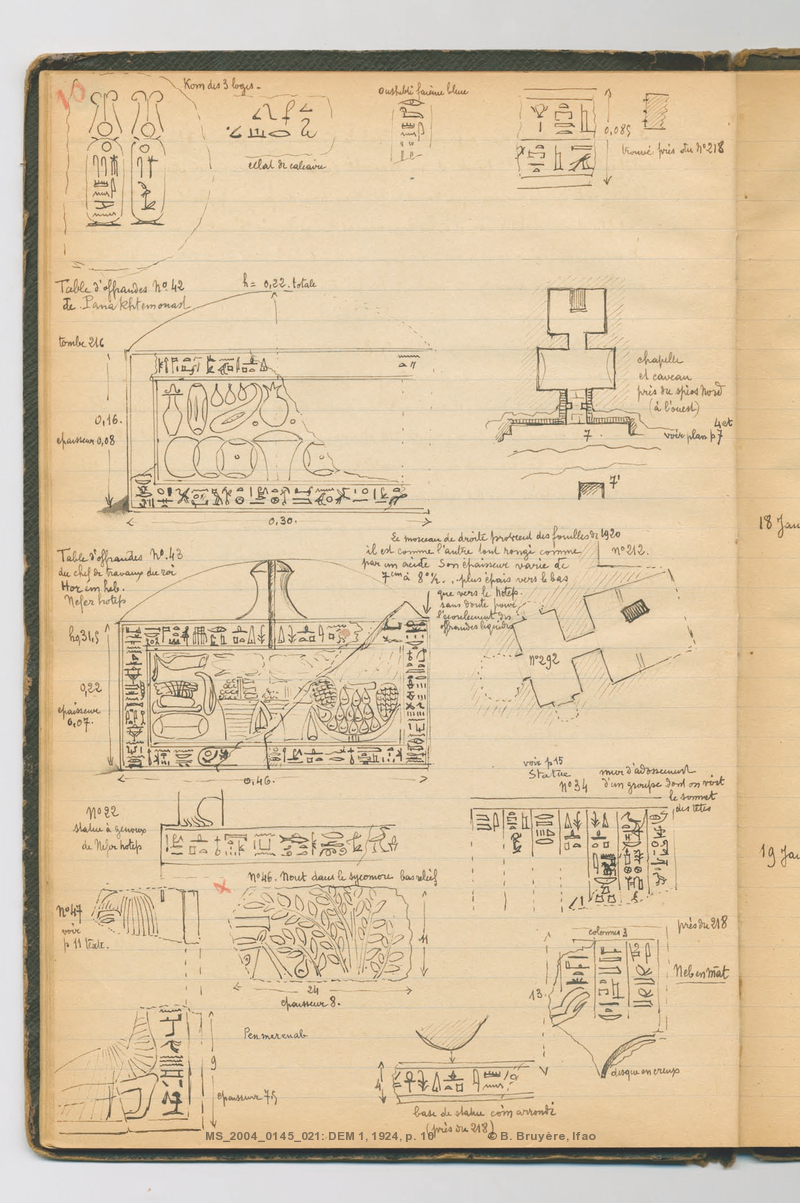 Kom des 3 loges.
éclat de calcaire
oushebti faïence bleue
0,085
trouvé près du Nº 218
Table d'offrandes Nº 42
de Panakhtemouast
h = 0,22. totale
tombe 216
0,16.
épaisseur 0,08
0,30.
chapelle
et caveau
près du spéos Nord
(à l'ouest)
voir plan p 7
7
7'
Table d'offrandes Nº 43
du chef de travaux du roi
Hor em heb.
Nefer hotep
Le morceau de droite provient des fouilles de 1920
il est comme l'autre tout rongé comme
par un acide Son épaisseur varie de
7 cm à 8 ½. plus épais vers le bas
que vers le hotep.
sans doute pour
l'écoulement des
offrandes liquides
nº 212.
nº 292
0,22
épaisseur
0,07.
0,46.
voir p 15
Statue
nº 34
mur d'adossement
d'un groupe dont on voit
le sommet
des têtes
Nº 22
statue à genoux
de Nefer hotep
Nº 46. Nout dans le sycomore bas relief
Nº 47
voir
p 11
24
épaisseur 8.
colonnes 3
près du 218
13.
Neb en mat
disque en creux
Pen mer enab
9
épaisseur 7,5
4
base de statue coin arrondi
(près du 218)
18 Jan
19 Ja
MS_2004_0145_021: DEM 1, 1924, p. 10
© B. Bruyère, Ifao